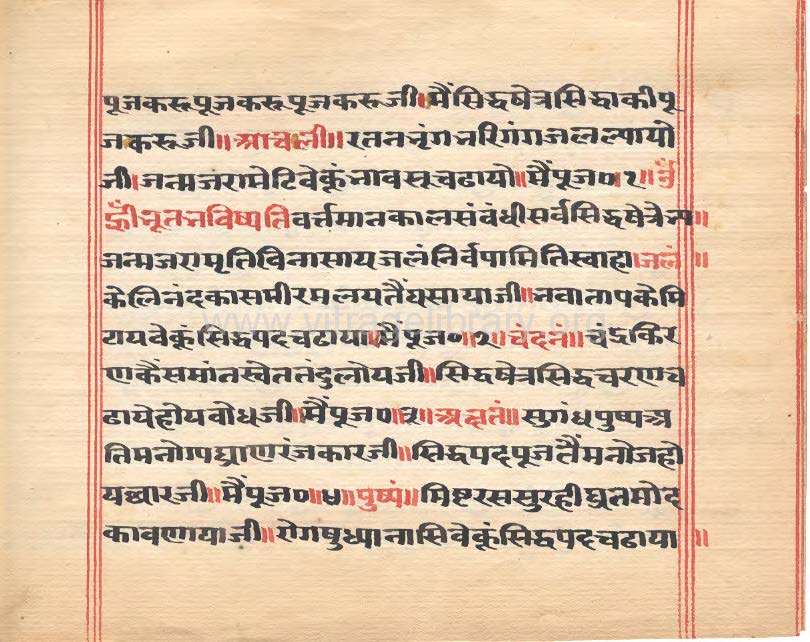 पूजकरूपूजकरूपूजकरूजी॥मैंसिद्धषेत्रसिद्धाकीपू
जकरूजी॥आचली॥रतनभृंगभरिगंगजलल्यायो
जी।जन्मजरामेटिवेकूंनावसूचढायो॥मैंपूज०१॥ॐ
ह्रींभूतभविष्यतिवर्त्तमानकालसंबंधीसर्वसिद्धषेत्रेभ्य॥
जन्मजरामृतिविनासायजलंनिर्वपामितिस्वाहा।जलं॥
केलिनंदकासमीरमलयतैंघसायाजी॥भवातापकेमि
टायवेकूंसिद्धपदचढाया॥मैंपूज०॥२॥चंदनं॥चंद्रकिर
णकैंसमांनस्वेततंदुलोयजी॥सिद्धषेत्रसिद्धचरणच
ढायेहोयबोधजी॥मैंपूज०॥३॥अक्षतं॥सुगंधपुष्पअ
तिमनोग्यघ्राणरंजकारजी॥सिद्धपदपूजतैंमनोजहो
यछारजी॥मैंपूज०॥४॥पुष्पं॥मिष्टरससुरहीघृतमोद
कावणायाजी॥रोगषुध्यानासिवेकूंसिद्धपदचढाया॥
www.vitragelibrary.org